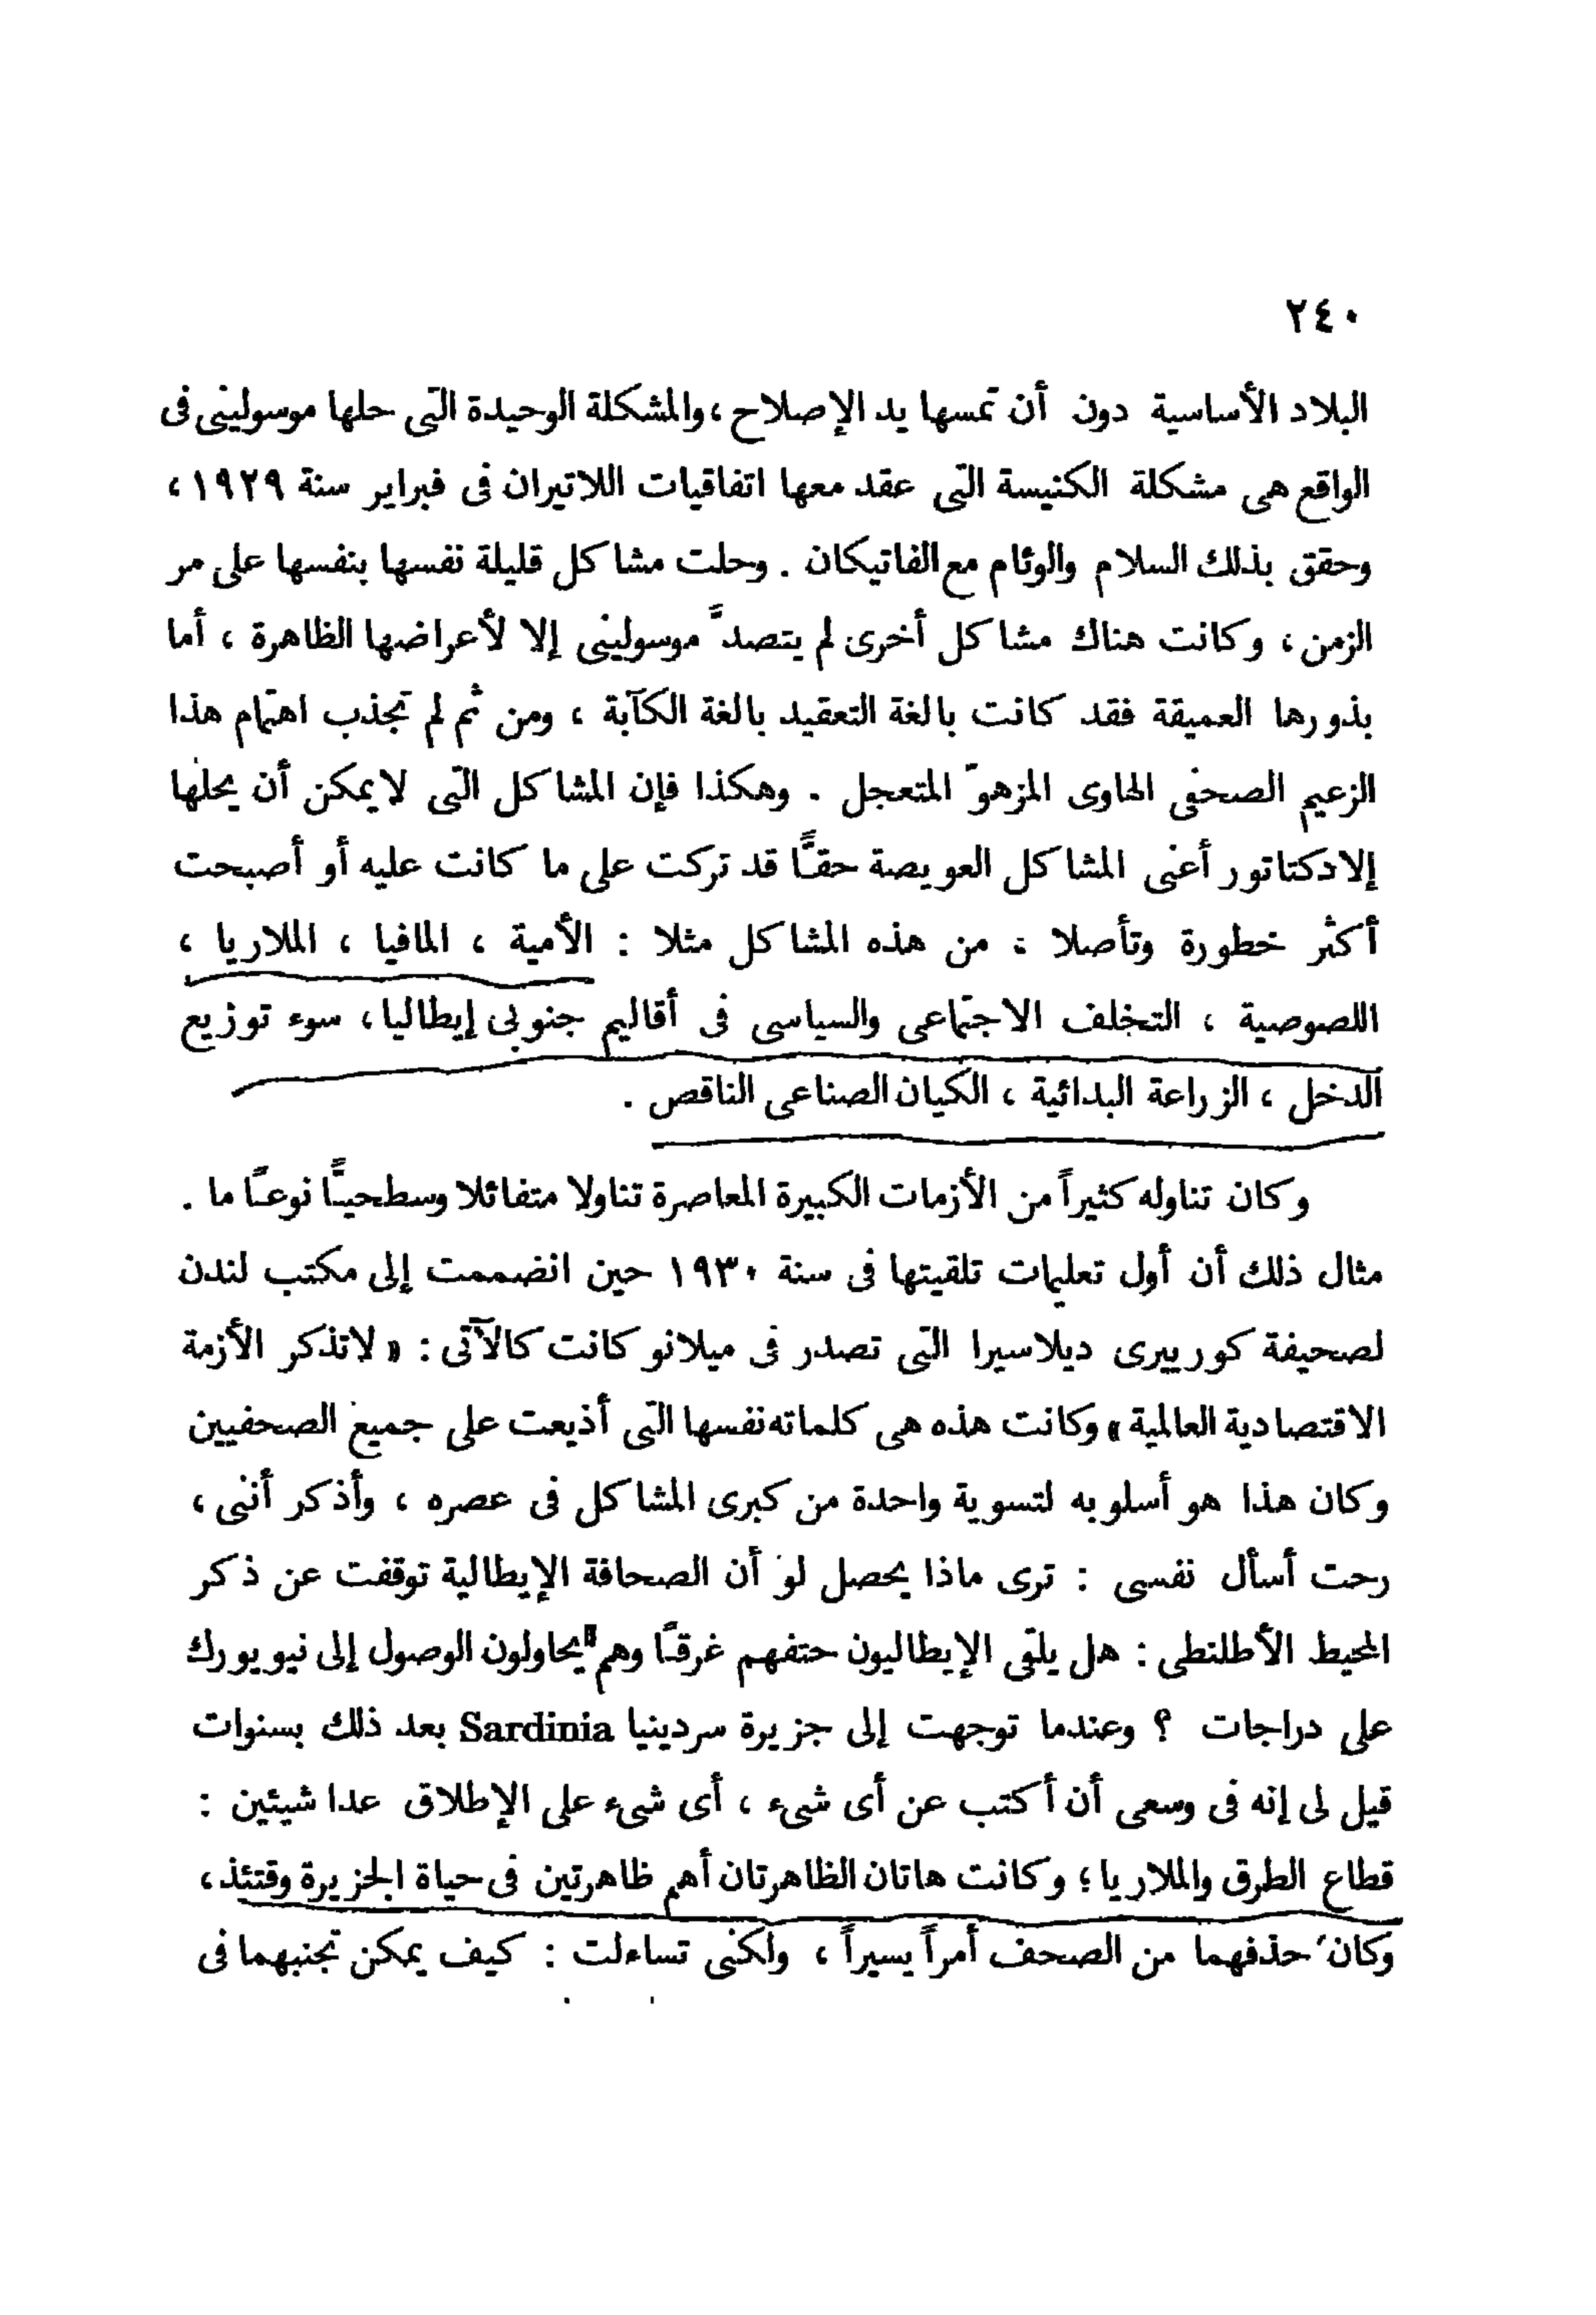 ٢٤٠
البلاد الأساسية دون أن تمسها يد الإصلاح ، والمشكلة الوحيدة التى حلها موسولينى فى
الواقع هى مشكلة الكنيسة التى عقد معها اتفاقيات اللاتيران فى فبراير سنة ١٩٢٩ ،
وحقق بذلك السلام والوئام مع الفاتيكان . وحلت مشاكل قليلة نفسها بنفسها على مر
الزمن ، وكانت هناك مشاكل أخرى لم يتصدَّ موسولينى إلا لأعراضها الظاهرة ، أما
بذورها العميقة فقد كانت بالغة التعقيد بالغة الكآبة ، ومن ثم لم تجذب اهتمام هذا
الزعيم الصحفى الحاوى المزهوّ المتعجل . وهكذا فإن المشاكل التى لا يمكن أن يحلها
إلا دكتاتور أعنى المشاكل العويصة حقًّا قد تركت على ما كانت عليه أو أصبحت
أكثر خطورة وتأصلا ؛ من هذه المشاكل مثلا : الأمية ، المافيا ، الملاريا ،
اللصوصية ، التخلف الاجتماعى والسياسى فى أقاليم جنوبى إيطاليا ، سوء توزيع
الدخل ، الزراعة البدائية ، الكيان الصناعى الناقص .
وكان تناوله كثيراً من الأزمات الكبيرة المعاصرة تناولا متفائلا وسطحيًّا نوعًا ما .
مثال ذلك أن أول تعليمات تلقيتها فى سنة ١٩٣٠ حين انضممت إلى مكتب لندن
لصحيفة كورييرى ديلاسيرا التى تصدر فى ميلانو كانت كالآتى : « لاتذكر الأزمة
الاقتصادية العالمية » وكانت هذه هى كلماته نفسها التى أذيعت على جميع الصحفيين
وكان هذا هو أسلوبه لتسوية واحدة من كبرى المشاكل فى عصره ، وأذكر أننى ،
رحت أسأل نفسى : ترى ماذا يحصل لو أن الصحافة الإيطالية توقفت عن ذكر
المحيط الأطلنطى : هل يلقى الإيطاليون حتفهم غرقًا وهم يحاولون الوصول إلى نيويورك
على دراجات ؟ وعندما توجهت إلى جزيرة سردينيا Sardinia بعد ذلك بسنوات
قيل لى إنه فى وسعى أن أكتب عن أى شىء ، أى شىء على الإطلاق عدا شيئين :
قطاع الطرق والملاريا ؛ وكانت هاتان الظاهرتان أهم ظاهرتين فى حياة الجزيرة وقتئذ ،
وكان حذفهما من الصحف أمراً يسيراً ، ولكنى تساءلت : كيف يمكن تجنبهما فى